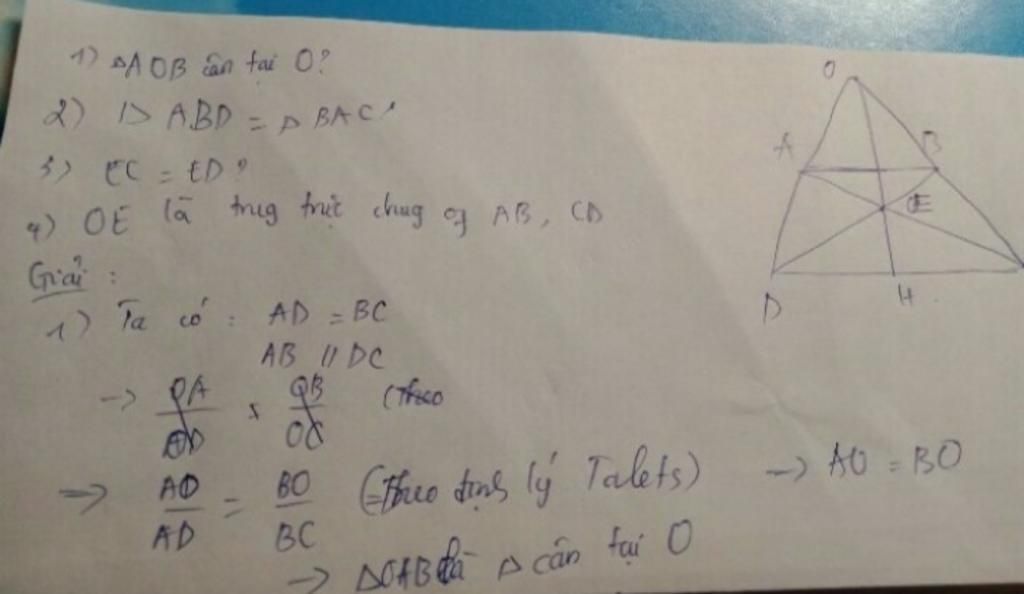 1) △AOB cân tại O?
2) △ ABD = △ BAC
3) EC = ED?
4) OE là trug trực chug of AB, CD
Giải :
1) Ta có : AD = BC
AB // DC
→ OA/OD × OB/OC (Theo
⇒ AO/AD = BO/BC (Theo định lý Talets) → AO = BO
→ △OAB là △ cân tại O
O
A B
E
D H